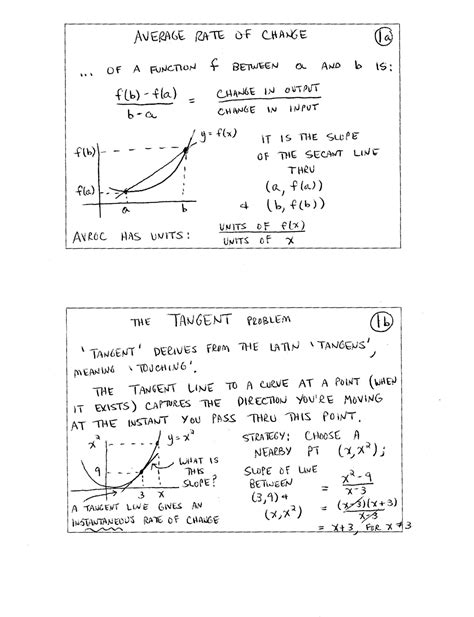 AVERAGE RATE OF CHANGE
1a
... OF A FUNCTION f BETWEEN a AND b IS:
f(b) - f(a) / b - a = CHANGE IN OUTPUT / CHANGE IN INPUT
y = f(x)
f(b)
f(a)
a
b
IT IS THE SLOPE
OF THE SECANT LINE
THRU
(a, f(a))
& (b, f(b))
AVROC HAS UNITS: UNITS OF f(x) / UNITS OF x
THE TANGENT PROBLEM
1b
'TANGENT' DERIVES FROM THE LATIN 'TANGENS',
MEANING 'TOUCHING'.
THE TANGENT LINE TO A CURVE AT A POINT (WHEN
IT EXISTS) CAPTURES THE DIRECTION YOU'RE MOVING
AT THE INSTANT YOU PASS THRU THIS POINT.
x²
y = x²
9
3
x
WHAT IS
THIS
SLOPE?
A TANGENT LINE GIVES AN
INSTANTANEOUS RATE OF CHANGE
STRATEGY: CHOOSE A
NEARBY PT (x, x²);
SLOPE OF LINE
BETWEEN
(3,9) &
(x, x²)
= x² - 9 / x - 3
= (x-3)(x+3) / x-3
= x+3, FOR x ≠ 3